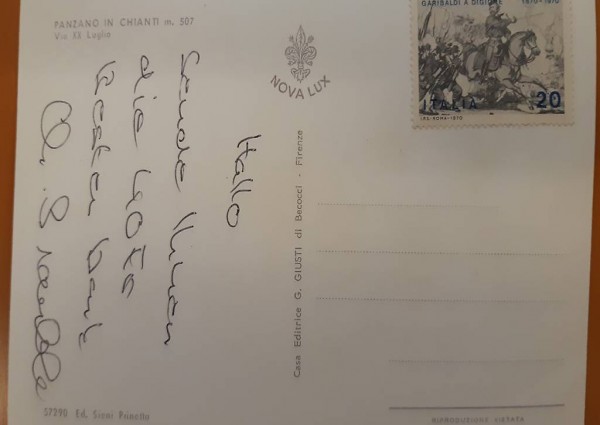 PANZANO IN CHIANTI m. 507
Via XX Luglio
Hallo
sende Ihnen
die Karte
Besten Dank
NOVA LUX
Casa Editrice G. GIUSTI di Becocci - Firenze
GARIBALDI A DIGIONE 1870-1970
ITALIA 20
I.P.S.-ROMA-1970
57290 Ed. Sieni Prinetta
RIPRODUZIONE VIETATA